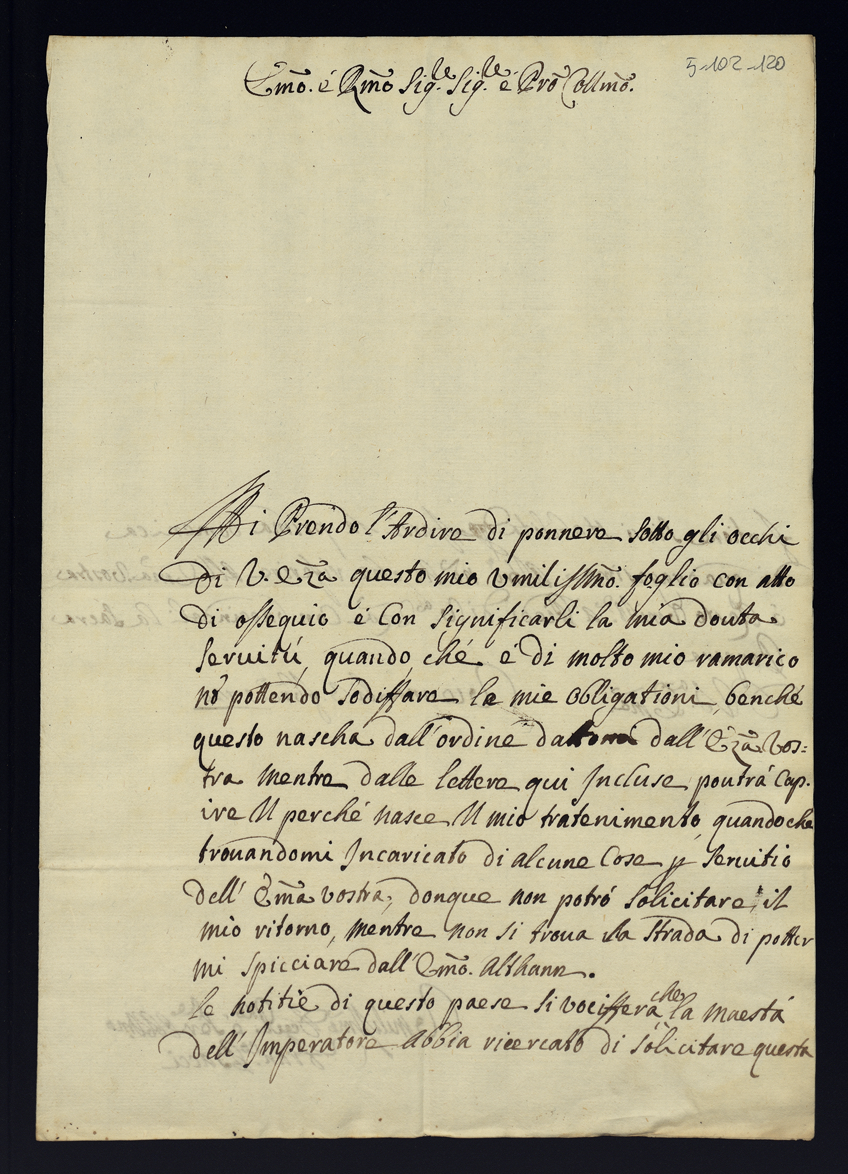 5-102-120
Emo. é Rmo Sig.re Sig.re é Prõ Collmo.
Mi Prendo l'Ardire di ponnere sotto gli occhi
di V. Eza questo mio Vmilissmo. foglio con atto
di ossequio é Con significarli la mia douta
seruitú, quando ché é di molto mio ramarico
nõ pottendo sodisfare le mie obligationi, benché
questo nascha dall'ordine dattomi dall'Eza Vos=
tra mentre dalle lettere qui Incluse poutrá Cap.
ire Il perché nasce Il mio tratenimento, quandoche
trouandomi Incaricato di alcune Cose p seruitio
dell'Ema vostra, donque non potró solicitare il
mio ritorno, mentre non si troua la strada di potter
mi spicciare dall'Emo. Althann.
le notitie di questo paese si vociffera che la maestá
dell'Imperatore abbia ricercato di solicitare questa